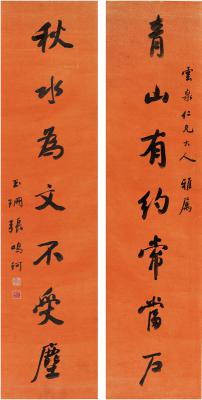 青山有約常當户
雲泉仁兄大人雅屬
秋水為文不受塵
玉珊張鳴珂